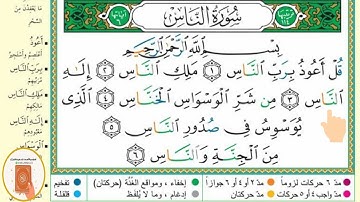 سُورَةُ النَّاسِ
بِسْمِ اللَّهِ الرَّحْمَٰنِ الرَّحِيمِ
قُلْ أَعُوذُ بِرَبِّ النَّاسِ ١ مَلِكِ النَّاسِ ٢ إِلَٰهِ
النَّاسِ ٣ مِن شَرِّ الْوَسْوَاسِ الْخَنَّاسِ ٤ الَّذِي
يُوَسْوِسُ فِي صُدُورِ النَّاسِ ٥
مِنَ الْجِنَّةِ وَالنَّاسِ ٦
أَعُوذُ
بِرَبِّ النَّاسِ
مَلِكِ النَّاسِ
إِلَٰهِ النَّاسِ
مدّ ٦ حركات لزوماً مدّ ٢ أو ٤ أو ٦ جوازاً إخفاء، ومواقع الغُنَّة (حركتان) تفخيم
مدّ واجب ٤ أو ٥ حركات مدّ حركتان إدغام، وما لا يُلفظ قلقلة